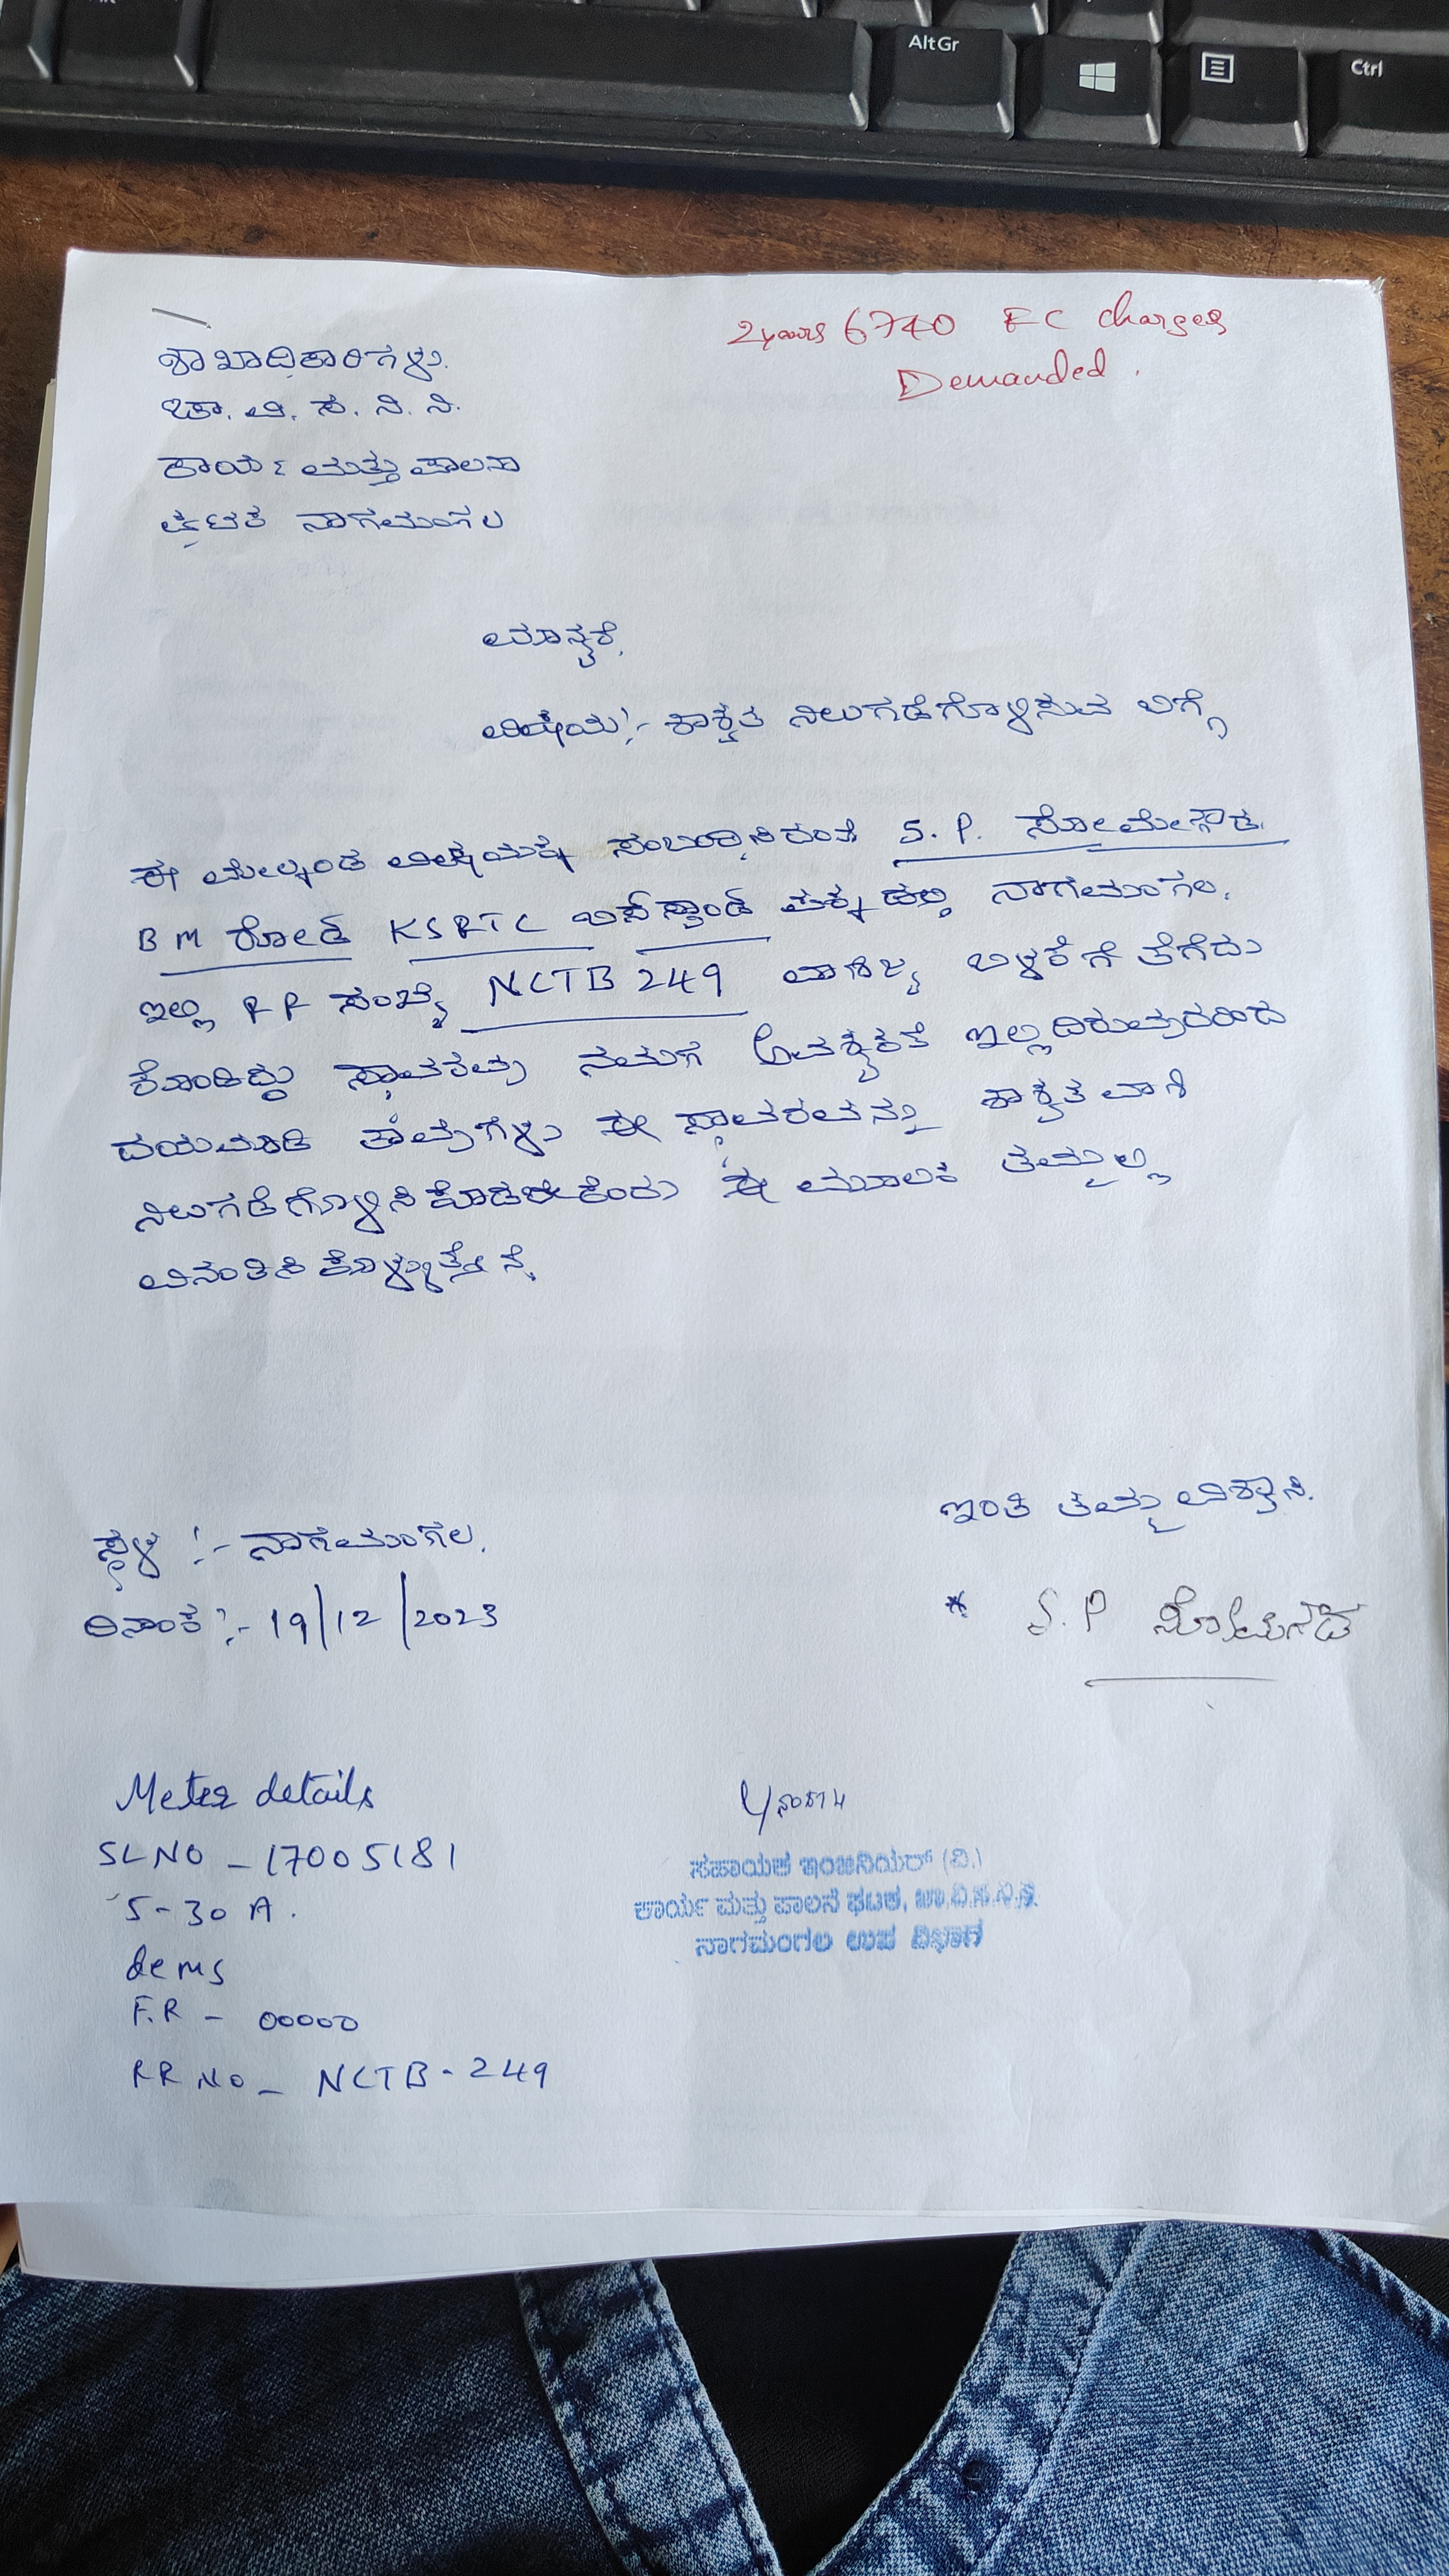 AltGr
Ctrl
2years 6740 EC charges
Demanded.
ಶಾಖಾಧಿಕಾರಿಗಳು.
ಚಾ. ವಿ. ಸ. ನಿ. ನಿ.
ಕಾರ್ಯ ಮತ್ತು ಪಾಲನಾ
ಘಟಕ ನಾಗಮಂಗಲ
ಮಾನ್ಯರೆ,
ವಿಷಯ:- ಶಾಶ್ವತ ನಿಲುಗಡೆಗೊಳಿಸುವ ಬಗ್ಗೆ
ಈ ಮೇಲ್ಕಂಡ ವಿಷಯಕ್ಕೆ ಸಂಬಂಧಿಸಿದಂತೆ S. P. ಸೋಮೇಗೌಡ.
B M ರೋಡ್ KSRTC ಬಸ್‌ಸ್ಟಾಂಡ್ ಪಕ್ಕದಲ್ಲಿ ನಾಗಮಂಗಲ.
ಇಲ್ಲಿ RR ಸಂಖ್ಯೆ NCTB 249 ವಾಣಿಜ್ಯ ಬಳಕೆಗೆ ತೆಗೆದು
ಕೊಂಡಿದ್ದು ಸ್ಥಾವರವು ನಮಗೆ ಅವಶ್ಯಕತೆ ಇಲ್ಲದಿರುವುದರಿಂದ
ದಯಮಾಡಿ ತಾವುಗಳು ಈ ಸ್ಥಾವರವನ್ನು ಶಾಶ್ವತವಾಗಿ
ನಿಲುಗಡೆಗೊಳಿಸಿಕೊಡಬೇಕೆಂದು ಈ ಮೂಲಕ ತಮ್ಮಲ್ಲಿ
ವಿನಂತಿಸಿಕೊಳ್ಳುತ್ತೇನೆ.
ಇಂತಿ ತಮ್ಮ ವಿಶ್ವಾಸಿ.
ಸ್ಥಳ :- ನಾಗಮಂಗಲ.
ದಿನಾಂಕ :- 19/12/2023
* S. P ಸೋಮೇಗೌಡ
Meter details
SLNO - 17005181
5-30 A.
ಸಹಾಯಕ ಇಂಜಿನಿಯರ್ (ವಿ.)
ಕಾರ್ಯ ಮತ್ತು ಪಾಲನೆ ಘಟಕ, ಚಾ.ವಿ.ಸ.ನಿ.ನಿ.
ನಾಗಮಂಗಲ ಉಪ ವಿಭಾಗ
F.R - 00000
RR NO - NCTB - 249